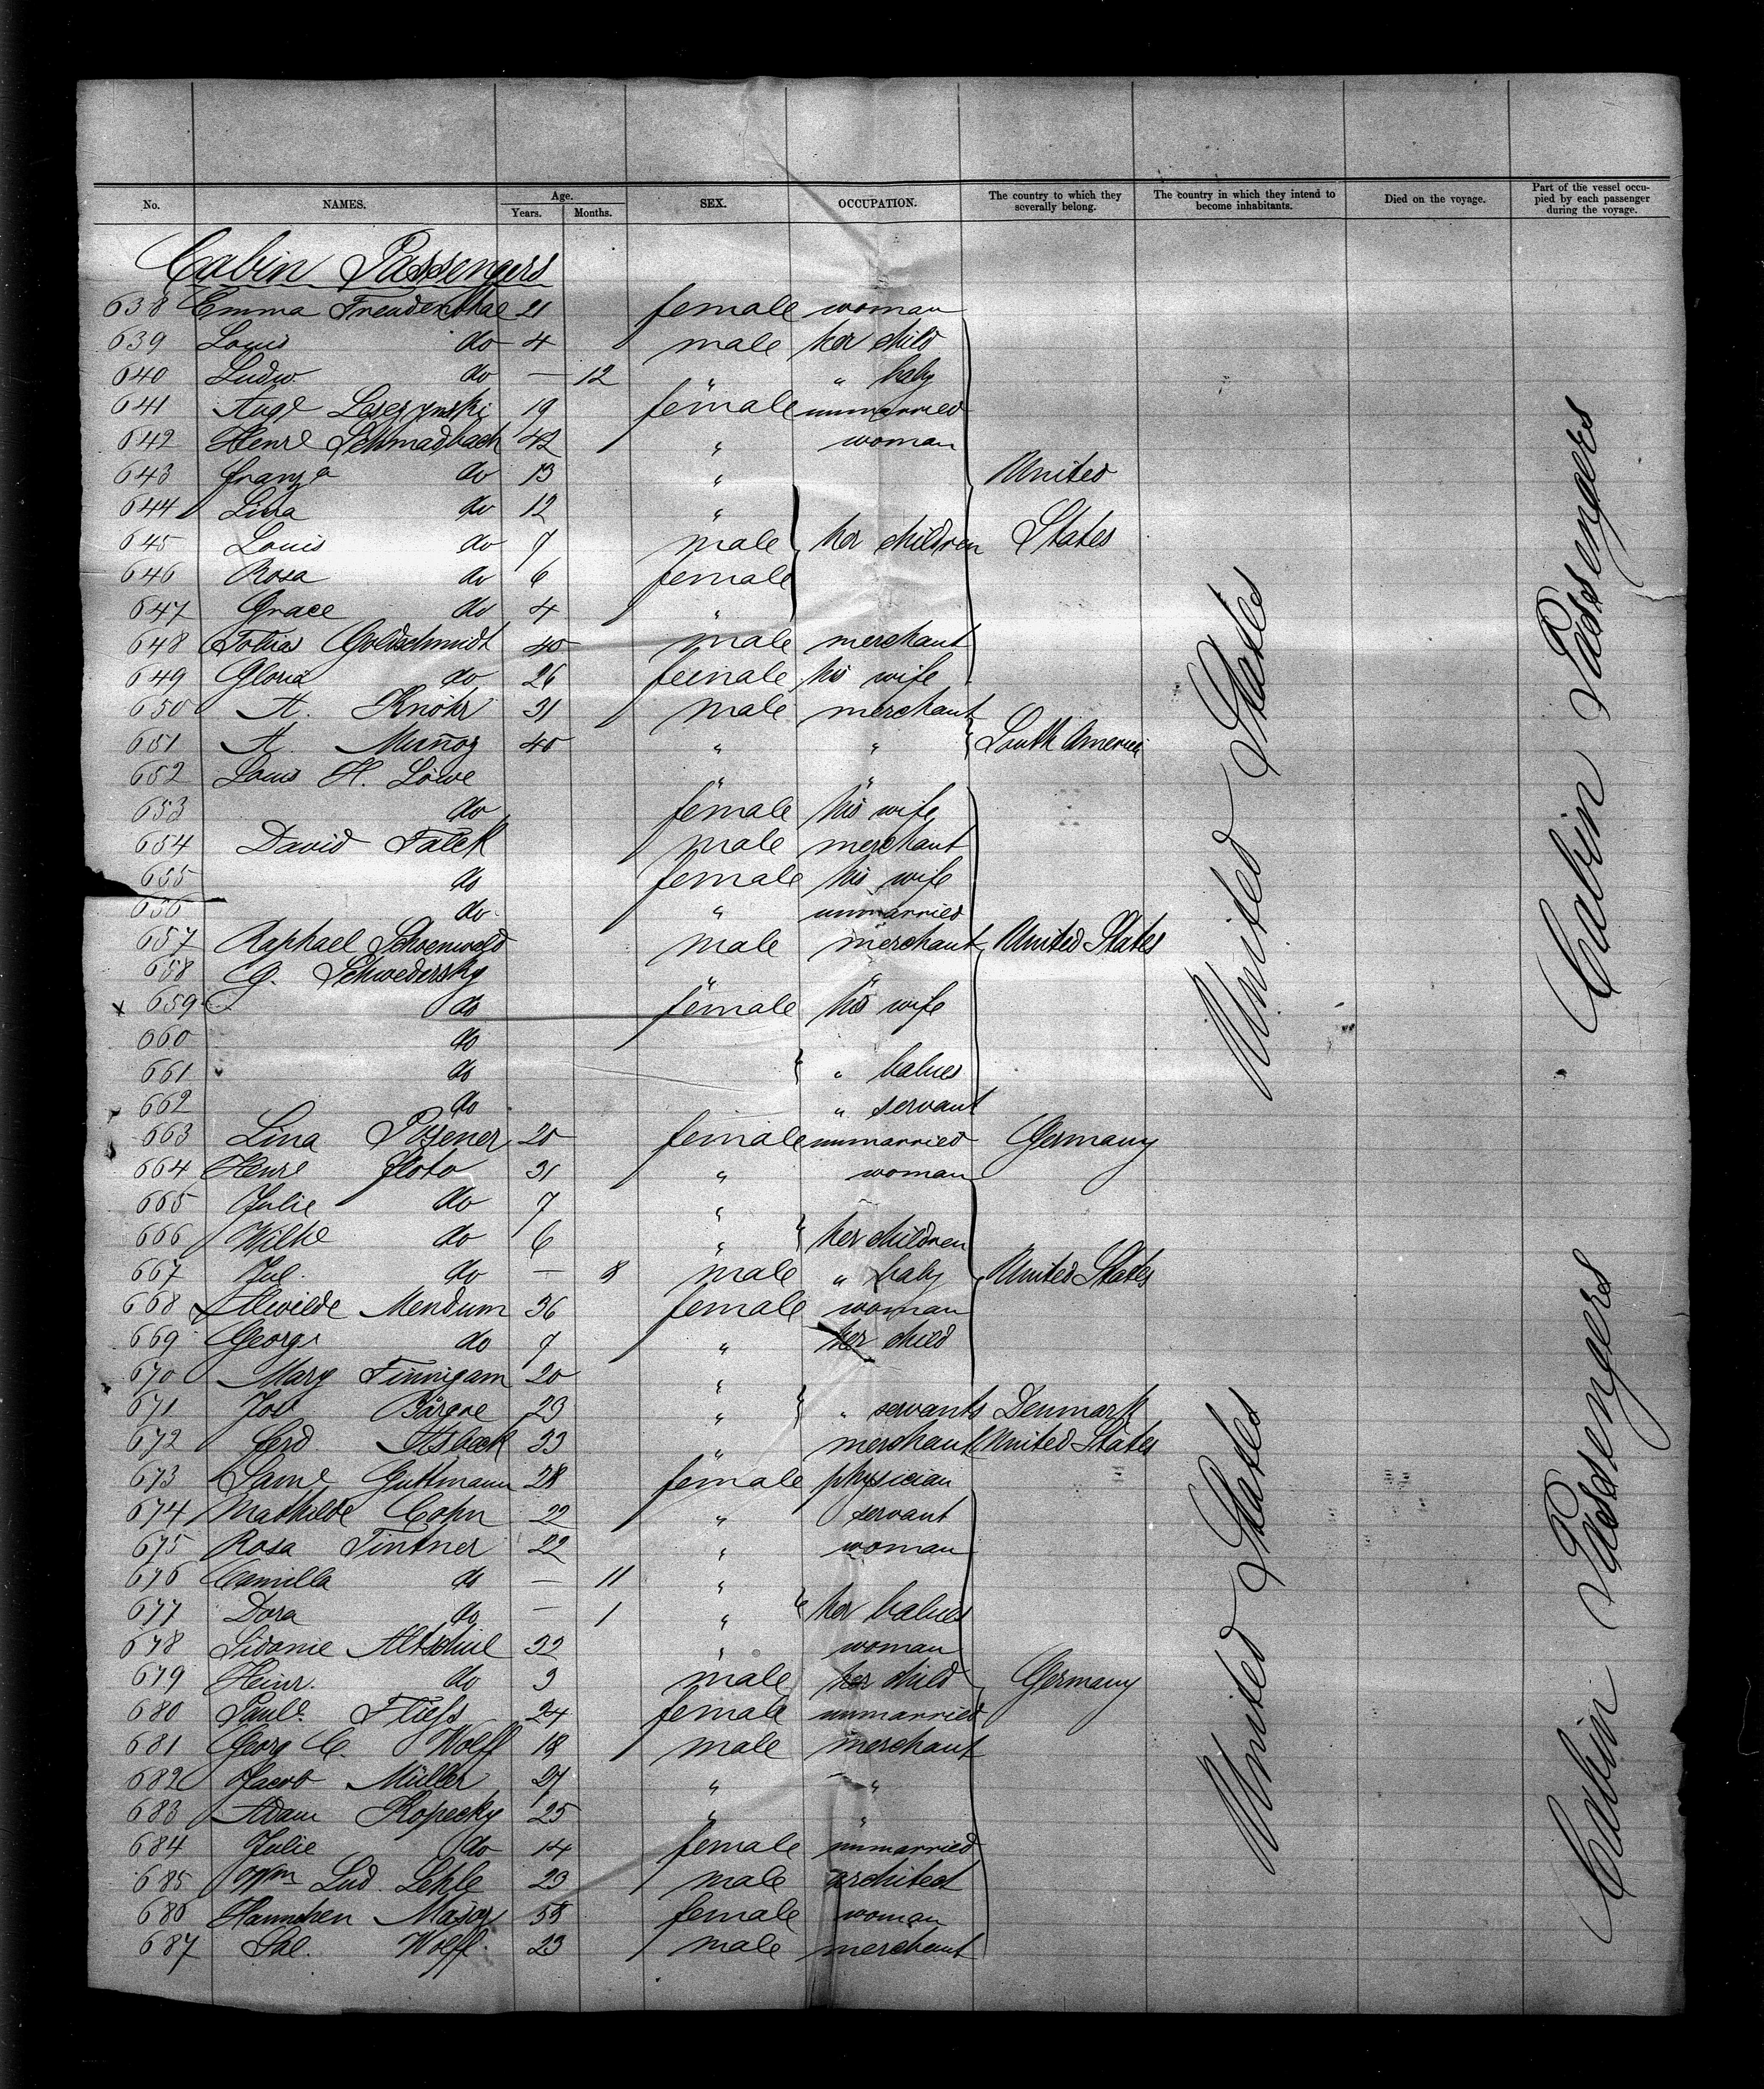 No. NAMES. Age. Years. Months. SEX. OCCUPATION. The country to which they severally belong. The country in which they intend to become inhabitants. Died on the voyage. Part of the vessel occupied by each passenger during the voyage.
Cabin Passengers
638 Emma Freudenthal 21 female woman
639 Louis do 4 male her child
640 Ludw. do — 12 " " baby
641 Auge Leszynski 19 female unmarried
642 Henre Schmadbach 42 " woman
643 Franza do 13 " United
644 Lina do 12 "
645 Louis do 7 male her children States
646 Rosa do 6 female
647 Grace do 4 "
648 Tobias Goldschmidt 40 male merchant
649 Gloria do 26 female his wife
650 A. Knöhr 31 male merchant
651 A. Muñoz 40 " " South America
652 Louis H. Löwe " "
653 do female his wife
654 David Falck male merchant
655 do female his wife
656 do " unmarried
657 Raphael Schoenwald male merchant United States
658 G. Schwedersky " "
659 do female his wife
660 do
661 do " babies
662 do " servant
663 Lina Posener 20 female unmarried Germany
664 Henre Floto 31 " woman
665 Julie do 7 "
666 Wilhe do 6 " her children
667 Jul. do — 8 male " baby United States
668 Alwilde Mendum 36 female woman
669 Georg do 7 " her child
670 Mary Finnigam 20 "
671 Job 23 " " servants Denmark
672 Ferd. Asbeck 33 " merchant United States
673 Same Guttmann 28 female physician
674 Mathilde Cohn 22 " servant
675 Rosa Tintner 22 " woman
676 Camilla do — 11 "
677 Dora do — 1 " her babies
678 Sidonie Altschul 32 " woman
679 Heinr. do 3 male her child Germany
680 Paule Fliess 24 female unmarried
681 Georg C. Wolff 18 male merchant
682 Jacob Müller 27 " "
683 Adam Kopecky 25 " "
684 Julie do 14 female unmarried
685 Wm Lud. Lehle 23 male architect
686 Hannchen Major 58 female woman
687 Sal. Wolff 23 male merchant
United States
United States
Cabin Passengers
Cabin Passengers